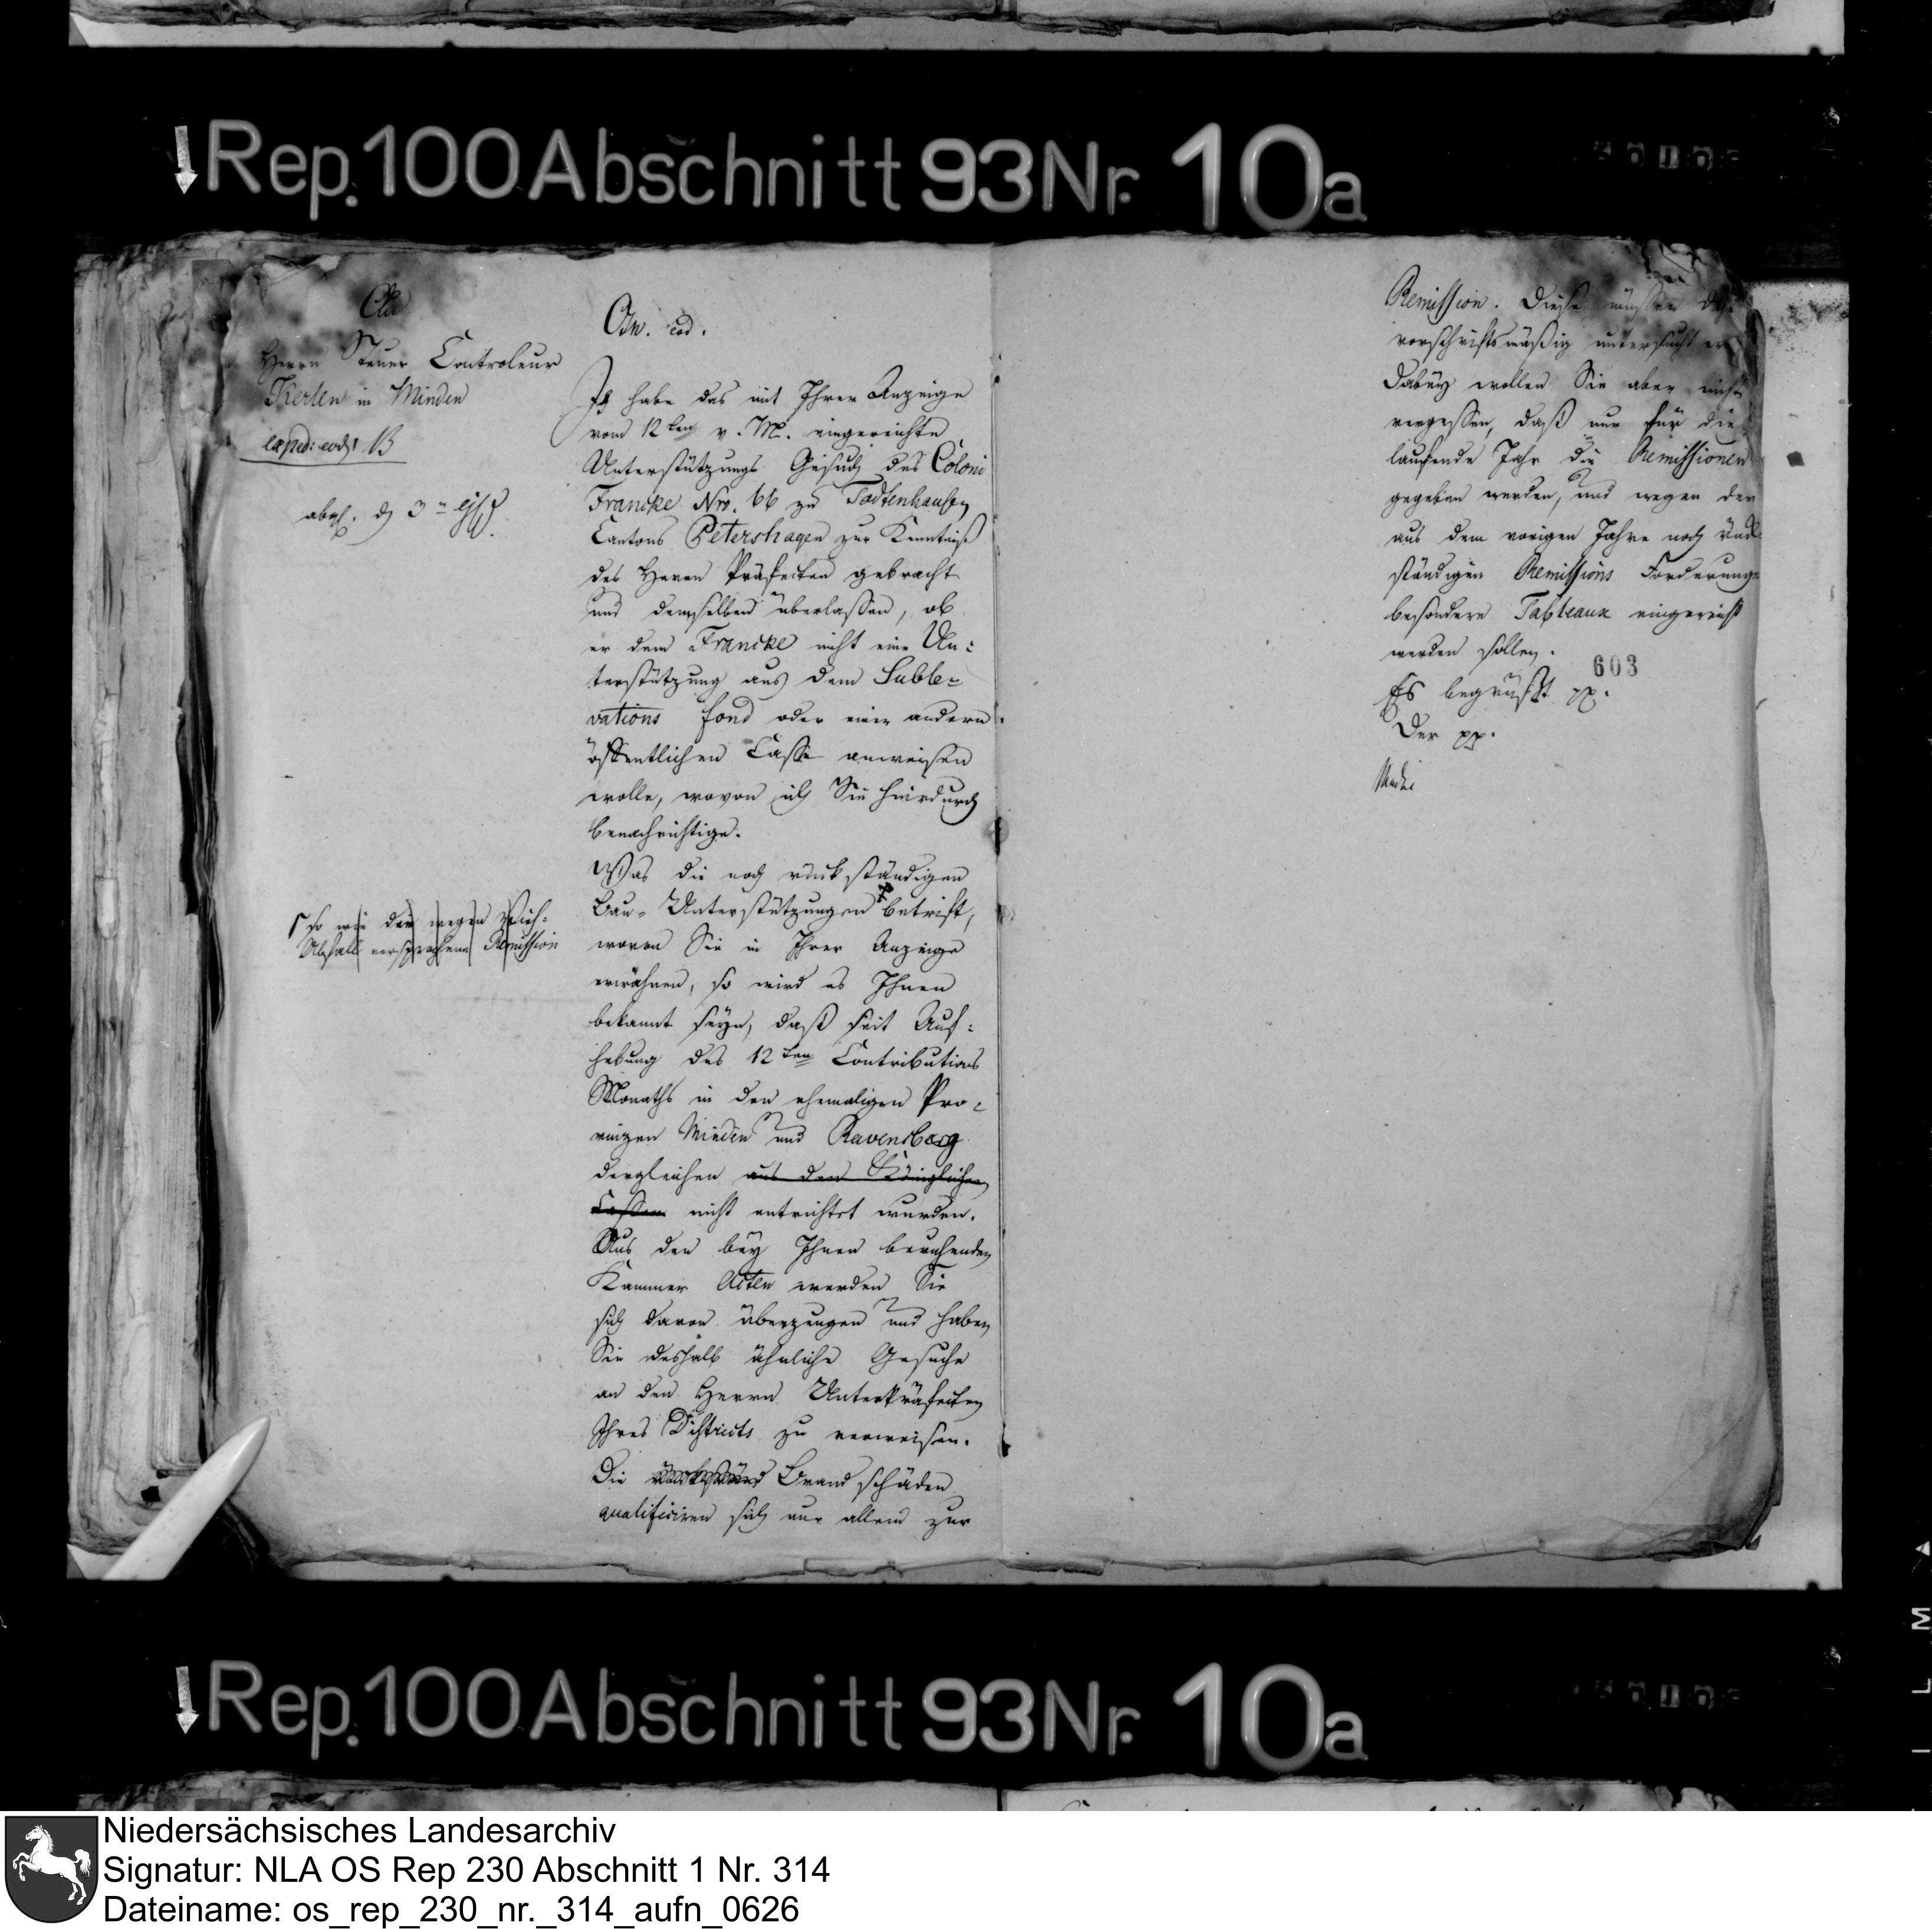 Rep. 100 Abschnitt 93 Nr. 10a
Herrn Steuer Controleur
Kerlen in Minden
exped: eod: B
Osn. eod.
Ich habe das mit Ihrer Anzeige
vom 12ten v. M. eingereichte
Unterstützungs Gesuch des Coloni
Francke Nro. 66 zu Todtenhausen
Cantons Petershagen zur Kenntniß
des Herrn Präfecten gebracht
und demselben überlassen, ob
er dem Francke nicht eine Un=
terstützung aus dem Suble=
vations fond oder einer andern
öffentlichen Casse anweisen
wolle, wovon ich Sie hierdurch
benachrichtige.
Was die noch rückständigen
Bau- Unterstützungen betrift,
so wie der wegen Vieh=
Abfall versprochene Remission
wovon Sie in Ihrer Anzeige
erwähnen, so wird es Ihnen
bekannt seyn, daß seit Auf=
hebung des 12ten Contributions
Monaths in den ehemaligen Pro=
vinzen Minden und Ravensberg
dergleichen aus den Königlichen
Cassen nicht entrichtet wurden.
Aus den bey Ihnen beruhenden
Kammer Acten werden Sie
sich davon überzeugen und haben
Sie deshalb ähnliche Gesuche
an den Herrn Unterpräfecten
Ihres Districts zu verweisen.
Die Brandschäden
qualificiren sich nur allein zur
Remission. Diese müssen
vorschriftsmäßig untersucht
dabey wollen Sie aber nicht
vergessen, daß nur für die
laufende Jahr die Remissionen
gegeben werden, und wegen der
aus dem vorigen Jahre noch rück
ständigen Remissions Forderunge
besondere Tableaux eingereicht
werden sollen.
603
Es begrüßt pp.
Der pp.
Rep. 100 Abschnitt 93 Nr. 10a
Niedersächsisches Landesarchiv
Signatur: NLA OS Rep 230 Abschnitt 1 Nr. 314
Dateiname: os_rep_230_nr._314_aufn_0626